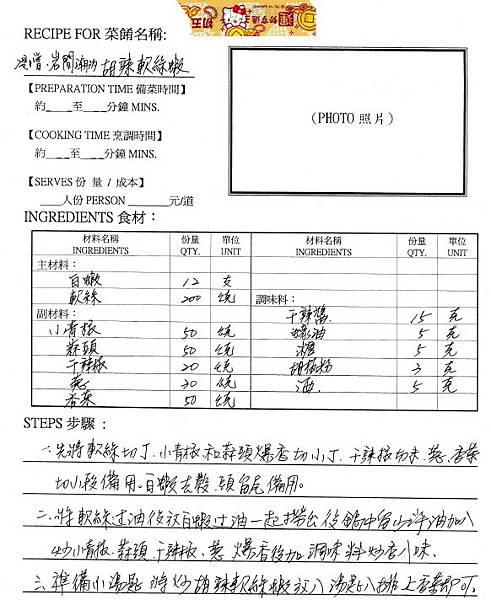 RECIPE FOR 菜餚名稱:
胡辣軟絲蝦
【PREPARATION TIME 備菜時間】
約___至___分鐘 MINS.
(PHOTO 照片)
【COOKING TIME 烹調時間】
約___至___分鐘 MINS.
【SERVES 份 量 / 成本】
___人份 PERSON ______元/道
INGREDIENTS 食材：
材料名稱 份量 單位 材料名稱 份量 單位
INGREDIENTS QTY. UNIT INGREDIENTS QTY. UNIT
主材料：
白蝦 12 支
軟絲 200 克 調味料：
副材料： 干辣醬 15 克
小青椒 50 克 蠔油 5 克
蒜頭 50 克 糖 5 克
干辣椒 20 克 胡椒粉 3 克
蔥 30 克 酒 5 克
香菜 50 克
STEPS 步驟：
一.先將軟絲切丁.小青椒和蒜頭爆香切小丁.干辣椒切末.蔥.香菜
切小段備用.白蝦去殼.頭留尾備用.
二.將軟絲过油後放白蝦过油一起撈出後鍋中留少許油加入
炒小青椒.蒜頭.干辣椒.蔥.爆香後加調味料炒香入味.
三.準備小湯匙.將炒胡辣軟絲蝦放入湯匙排上香菜即可.